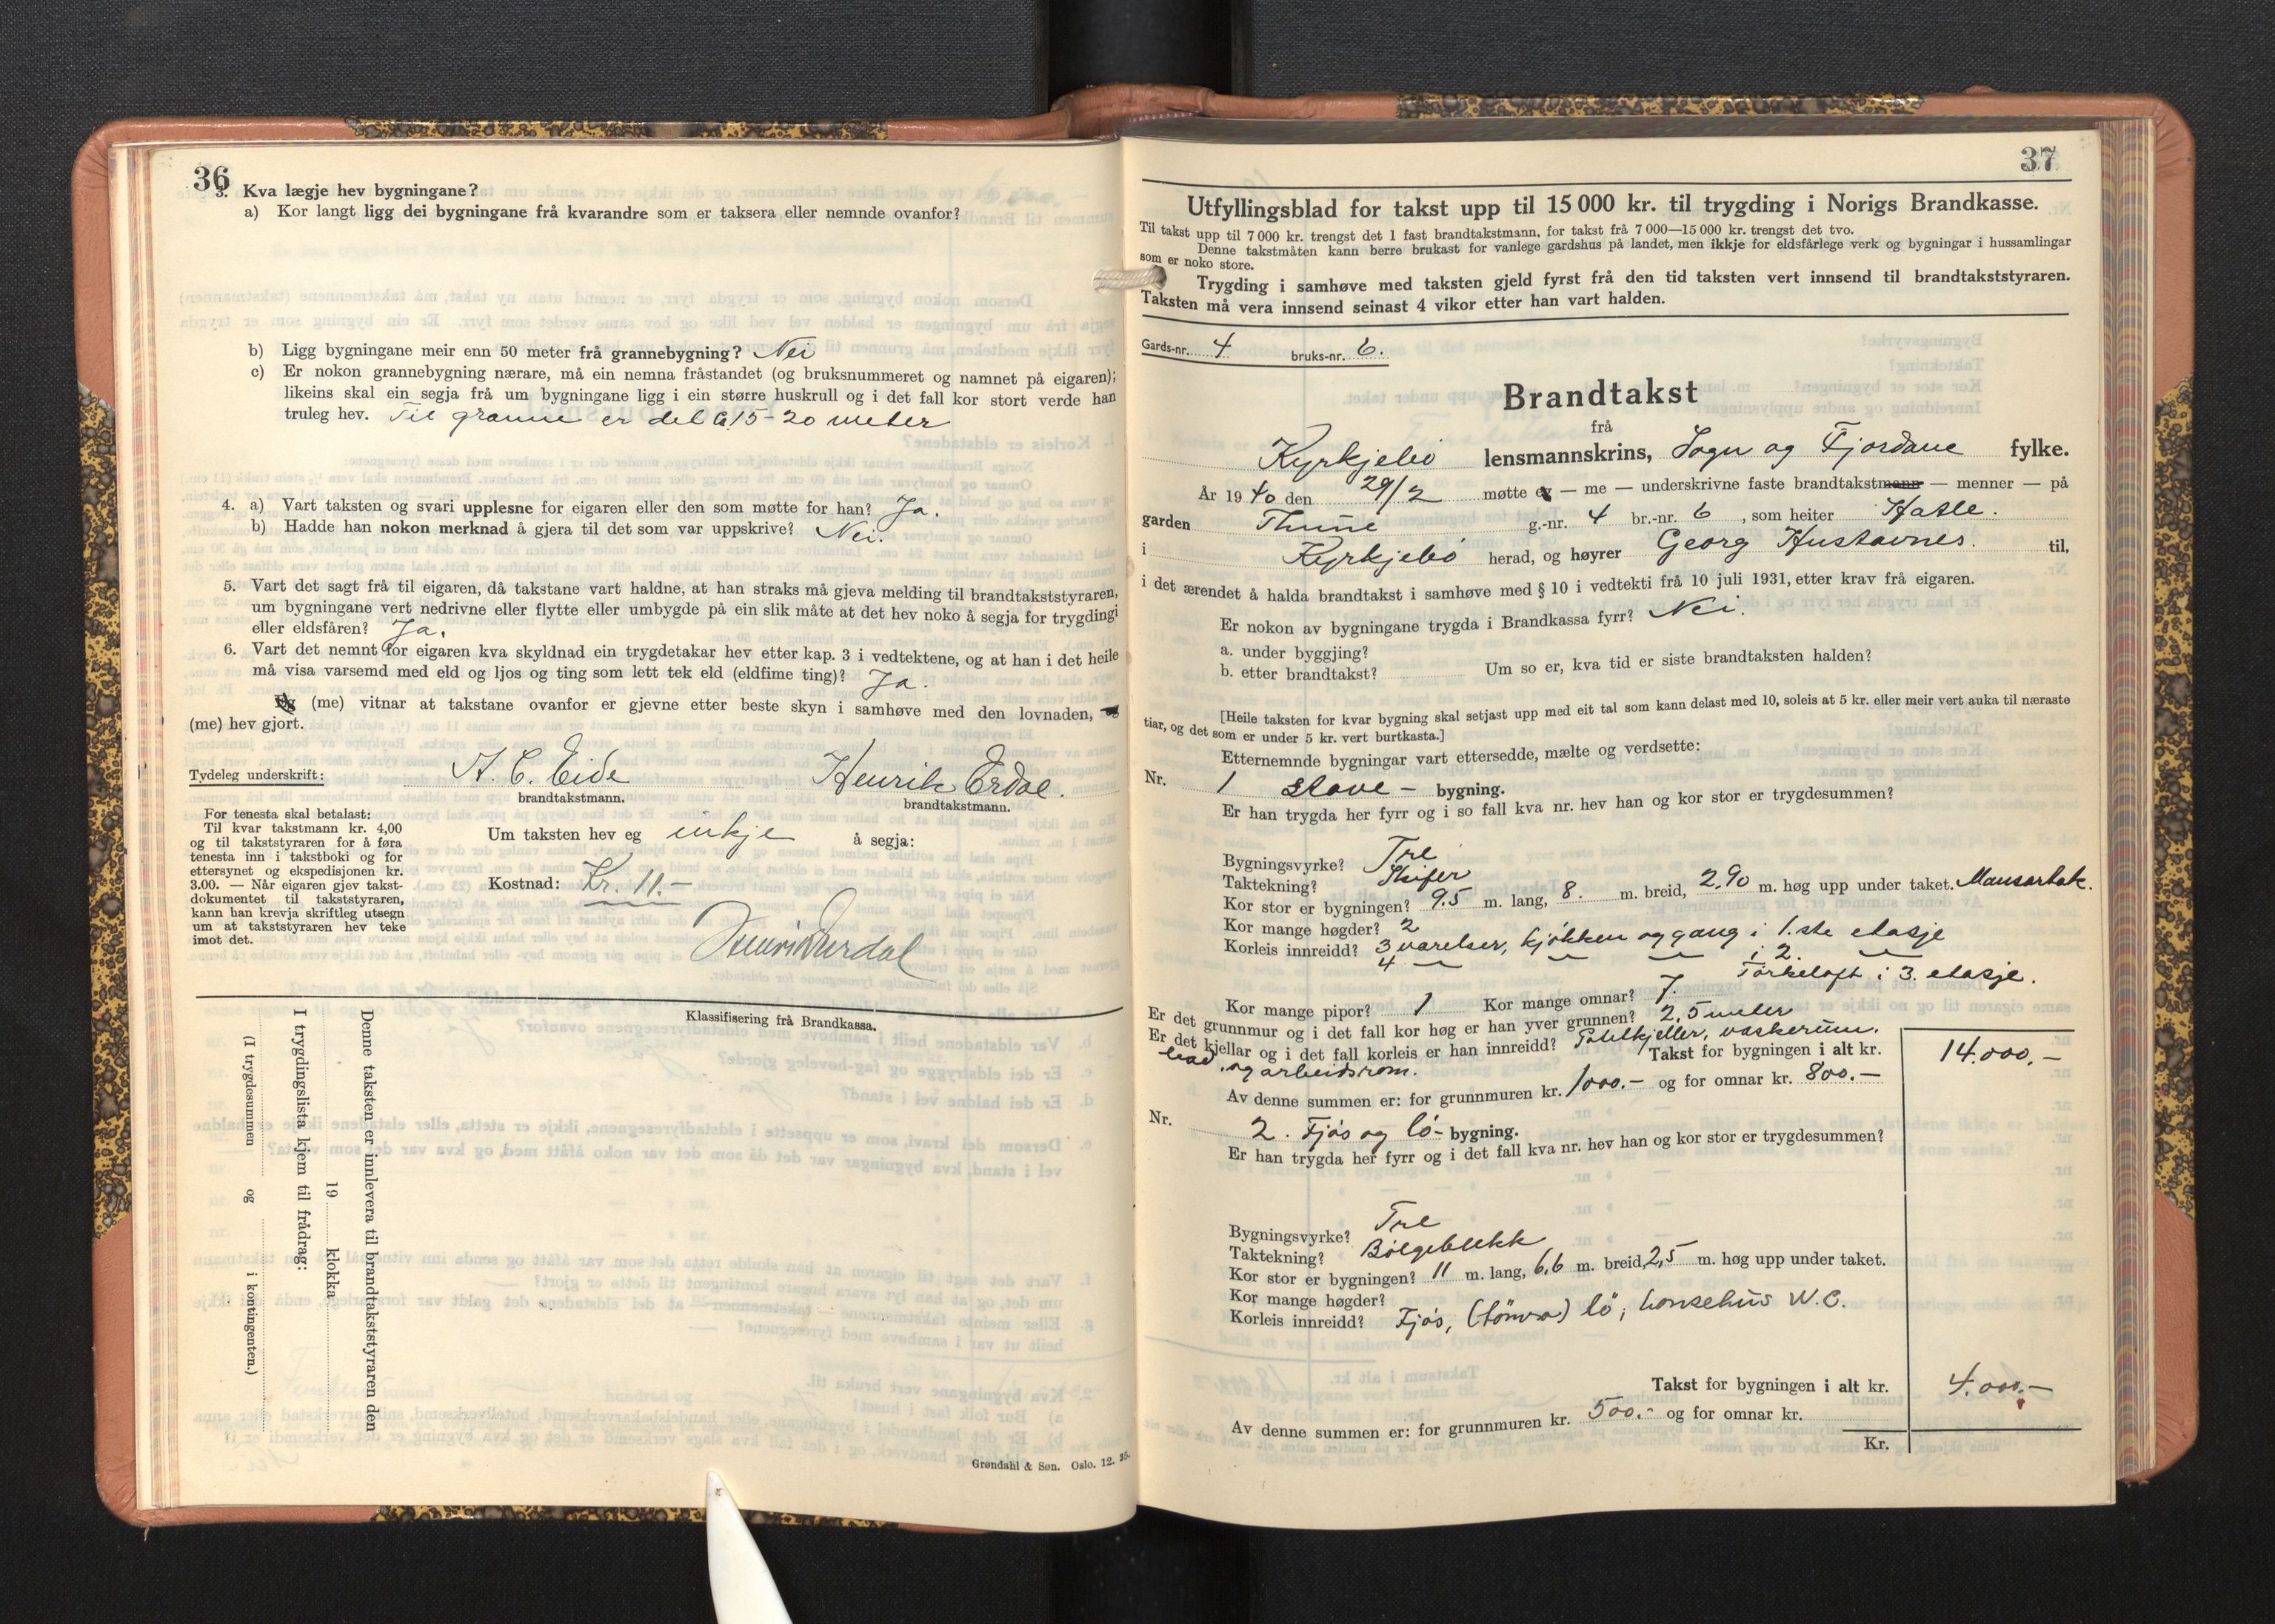 36
3. Kva lægje hev bygningane?
a) Kor langt ligg dei bygningane frå kvarandre som er taksera eller nemnde ovanfor?
b) Ligg bygningane meir enn 50 meter frå grannebygning? Nei
c) Er nokon grannebygning nærare, må ein nemna fråstandet (og bruksnummeret og namnet på eigaren);
likeins skal ein segja frå um bygningane ligg i ein større huskrull og i det fall kor stort verde han
truleg hev. Til granne er det 15-20 meter
4. a) Vart taksten og svari upplesne for eigaren eller den som møtte for han? Ja.
b) Hadde han nokon merknad å gjera til det som var uppskrive? Nei.
5. Vart det sagt frå til eigaren, då takstane vart haldne, at han straks må gjeva melding til brandtakststyraren,
um bygningane vert nedrivne eller flytte eller umbygde på ein slik måte at det hev noko å segja for trygdingi
eller eldsfåren? Ja.
6. Vart det nemnt for eigaren kva skyldnad ein trygdetakar hev etter kap. 3 i vedtektene, og at han i det heile
må visa varsemd med eld og ljos og ting som lett tek eld (eldfime ting)? Ja.
Eg (me) vitnar at takstane ovanfor er gjevne etter beste skyn i samhøve med den lovnaden, eg
(me) hev gjort.
Tydeleg underskrift: A. C. Eide Henrik Erdal.
brandtakstmann. brandtakstmann.
For tenesta skal betalast:
Til kvar takstmann kr. 4,00
og til takststyraren for å føra
tenesta inn i takstboki og for
ettersynet og ekspedisjonen kr.
3.00. — Når eigaren gjev takst-
dokumentet til takststyraren,
kann han krevja skriftleg utsegn
um at takststyraren hev teke
imot det.
Um taksten hev eg inkje å segja:
Kostnad: Kr. 11.-
Klassifisering frå Brandkassa.
Denne taksten er innlevera til brandtakststyraren den
19 klokka
I trygdingslista kjem til frådrag:
(I trygdesummen og i kontingenten.)
Grøndahl & Søn. Oslo. 12. 35.
37
Utfyllingsblad for takst upp til 15 000 kr. til trygding i Norigs Brandkasse.
Til takst upp til 7 000 kr. trengst det 1 fast brandtakstmann, for takst frå 7 000—15 000 kr. trengst det tvo.
Denne takstmåten kann berre brukast for vanlege gardshus på landet, men ikkje for eldsfårlege verk og bygningar i hussamlingar
som er noko store.
Trygding i samhøve med taksten gjeld fyrst frå den tid taksten vert innsend til brandtakststyraren.
Taksten må vera innsend seinast 4 vikor etter han vart halden.
Gards-nr. 4 bruks-nr. 6.
Brandtakst
frå
Kyrkjebø lensmannskrins, Sogn og Fjordane fylke.
År 1940 den 29/2 møtte eg — me — underskrivne faste brandtakstmann — menner — på
garden Thune g.-nr. 4 br.-nr. 6, som heiter Hatle.
i Kyrkjebø herad, og høyrer Georg Hustavnes. til,
i det ærendet å halda brandtakst i samhøve med § 10 i vedtekti frå 10 juli 1931, etter krav frå eigaren.
Er nokon av bygningane trygda i Brandkassa fyrr? Nei.
a. under byggjing?
b. etter brandtakst? Um so er, kva tid er siste brandtaksten halden?
[Heile taksten for kvar bygning skal setjast upp med eit tal som kann delast med 10, soleis at 5 kr. eller meir vert auka til næraste
tiar, og det som er under 5 kr. vert burtkasta.]
Etternemnde bygningar vart ettersedde, mælte og verdsette:
Nr. 1 Stove- bygning.
Er han trygda her fyrr og i so fall kva nr. hev han og kor stor er trygdesummen?
Bygningsvyrke? Tre
Taktekning? Skifer
Kor stor er bygningen? 9.5 m. lang, 8. m. breid, 2.90 m. høg upp under taket. Mansartak.
Kor mange høgder? 2
Korleis innreidd? 3 værelser, kjøkken og gang i 1.ste etasje
4 — — — i 2. —
Tørkeloft i 3. etasje.
Kor mange pipor? 1 Kor mange omnar? 7.
Er det grunnmur og i det fall kor høg er han yver grunnen? 2,5 meter
Er det kjellar og i det fall korleis er han innreidd? Potetkjeller, vaskerum.
bad, og arbeidsrom.
Takst for bygningen i alt kr. 14.000.-
Av denne summen er: for grunnmuren kr. 1000.- og for omnar kr. 800.-
Nr. 2. Fjøs og lø- bygning.
Er han trygda her fyrr og i det fall kva nr. hev han og kor stor er trygdesummen?
Bygningsvyrke? Tre
Taktekning? Bølgeblekk
Kor stor er bygningen? 11 m. lang, 6,6 m. breid, 2,5 m. høg upp under taket.
Kor mange høgder?
Korleis innreidd? Fjøs, lø, hønsehus W.C.
Takst for bygningen i alt kr. 4.000.-
Av denne summen er: for grunnmuren kr. 500.- og for omnar kr.
Kr.